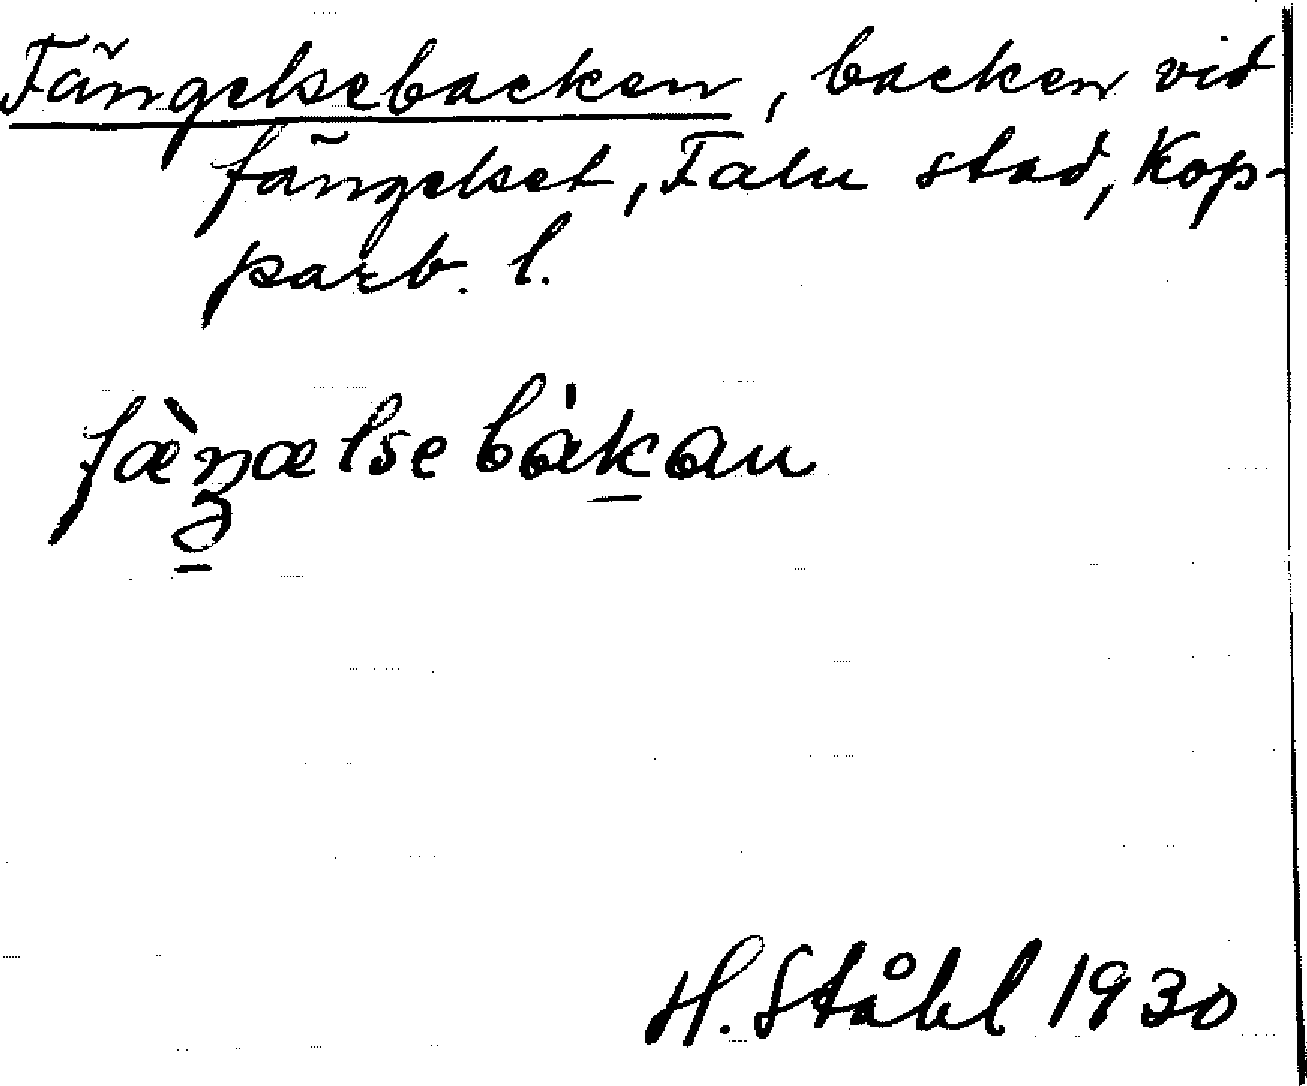 Fängelsebacken, backen vid
fängelset, Falu stad, Kop-
parb. l.
fæ̀ŋælsebàkan
H. Ståhl 1930